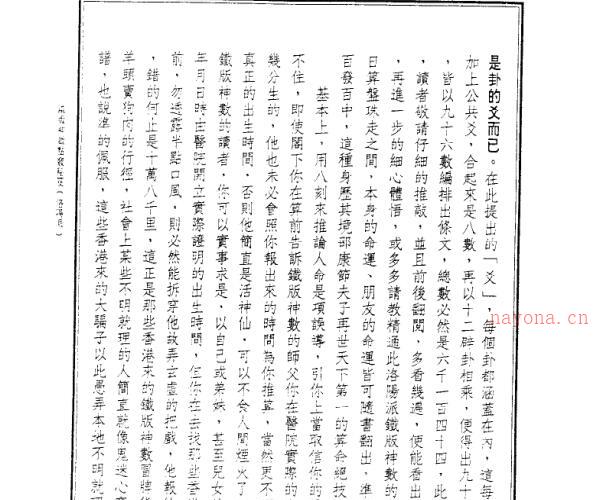 是卦的爻而已。在此提出的「爻」，每個卦都涵蓋在內，這每
加上公共爻，合起來是八數，再以十二辟卦相乘，便得出九十
，皆以九十六數編排出條文，總數必然是六千一百四十四，此
，讀者敬請仔細的推敲，並且前後翻閱，多看幾遍，便能看出
，再進一步的細心體悟，或多多請教精通此洛陽派鐵版神數的
日算盤珠走之間，本身的命運、朋友的命運皆可隨書翻出，準
百發百中，這種身歷其境邵康節夫子再世天下第一的算命絕技
基本上，用八刻來推論人命是項誤導，引你上當取信你的
不住，即使閣下你在算前告訴鐵版神數的師父你在醫院實際的
幾分生的，他也未必會照你報出來的時間為你推算，當然更不
真正的出生時間，否則他簡直是活神仙，可以不食人間煙火了
鐵版神數的讀者，你可以實事求是，以自己或弟妹，甚至兒女
年月日時由醫院開立實際證明的出生時間，但你在去找那些香
前，勿透露半點口風，則必然能拆穿他故弄玄虛的把戲，他報的
，錯的何止是十萬八千里，這正是那些香港來的鐵版神數冒牌
羊頭賣狗肉的行徑，社會上某些不明就理的人簡直就像鬼迷心
譜，也說準的佩服，這些香港來的大騙子以此愚弄本地不明就
nayona.cn